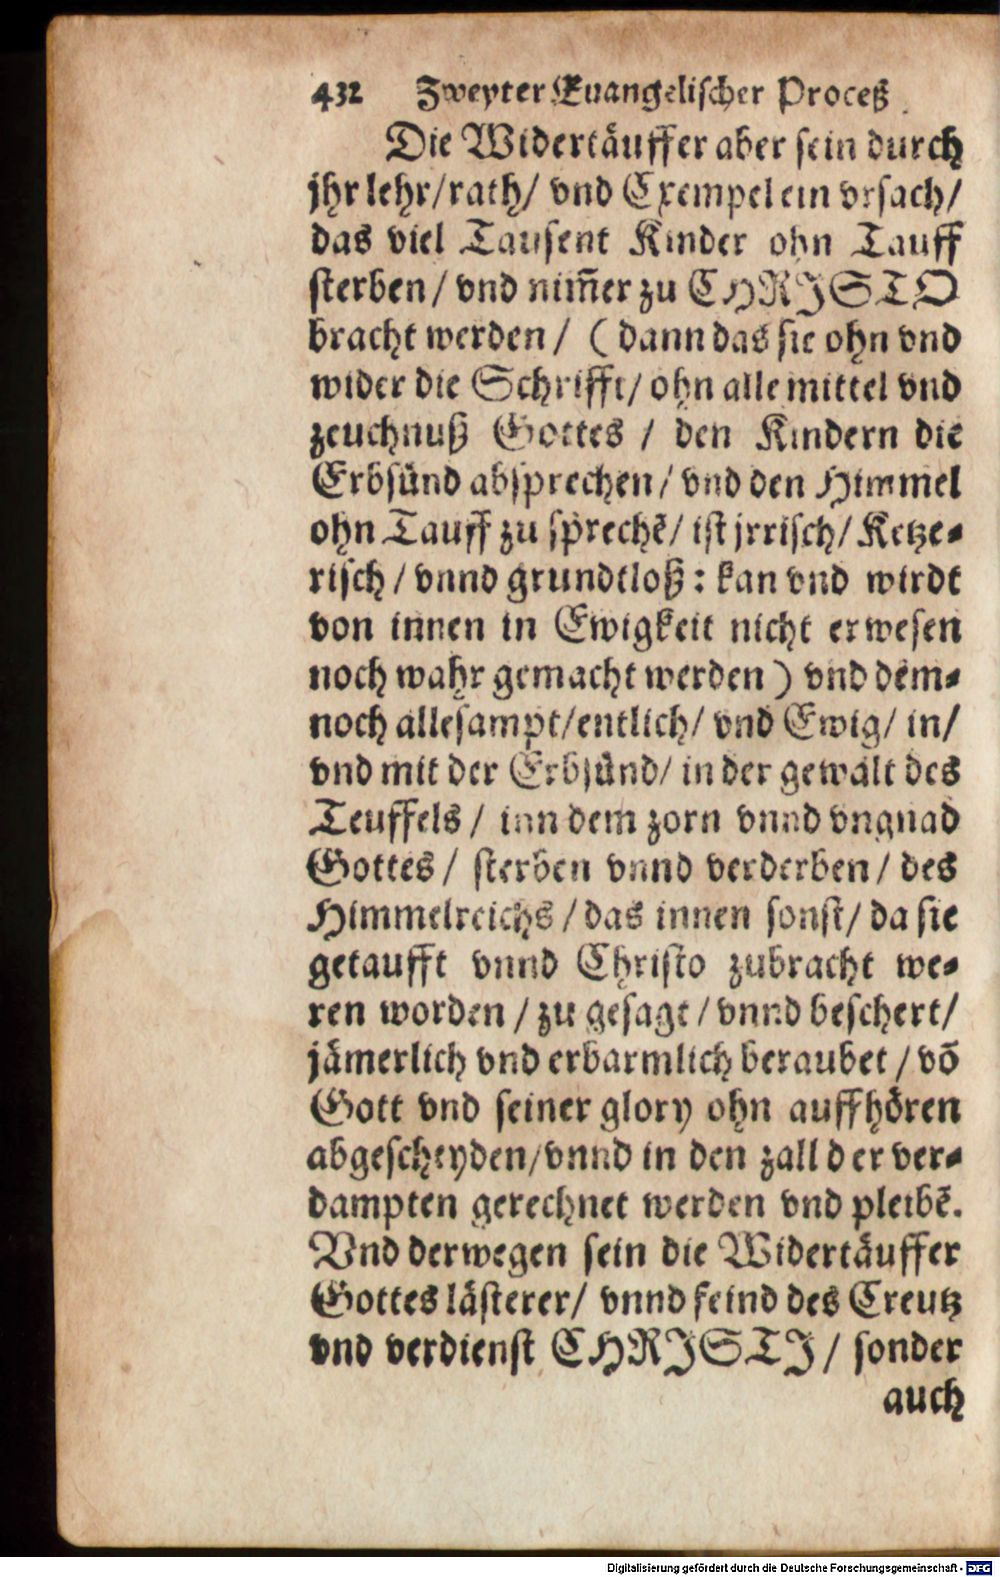 432 Zweyter Euangelischer Proceß
Die Widertäuffer aber sein durch
jhr lehr/rath/ vnd Exempel ein vrsach/
das viel Tausent Kinder ohn Tauff
sterben/ vnd nim̄er zu CHRISTO
bracht werden/ (dann das sie ohn vnd
wider die Schrifft/ ohn alle mittel vnd
zeuchnuß Gottes / den Kindern die
Erbsünd absprechen/ vnd den Himmel
ohn Tauff zu sprechē/ ist jrrisch/ Ketze-
risch/ vnnd grundtloß: kan vnd wirdt
von innen in Ewigkeit nicht erwesen
noch wahr gemacht werden) vnd dem-
noch allesampt/entlich/ vnd Ewig/ in/
vnd mit der Erbsünd/ in der gewalt des
Teuffels/ inn dem zorn vnnd vngnad
Gottes/ sterben vnnd verderben/ des
Himmelreichs/das innen sonst/ da sie
getaufft vnnd Christo zubracht we-
ren worden/ zu gesagt/ vnnd beschert/
jämerlich vnd erbarmlich beraubet/ vō
Gott vnd seiner glory ohn auffhören
abgescheyden/vnnd in den zall der ver-
dampten gerechnet werden vnd pleibē.
Vnd derwegen sein die Widertäuffer
Gottes lästerer/ vnnd feind des Creutz
vnd verdienst CHRISTI/ sonder
auch
Digitalisierung gefördert durch die Deutsche Forschungsgemeinschaft - DFG